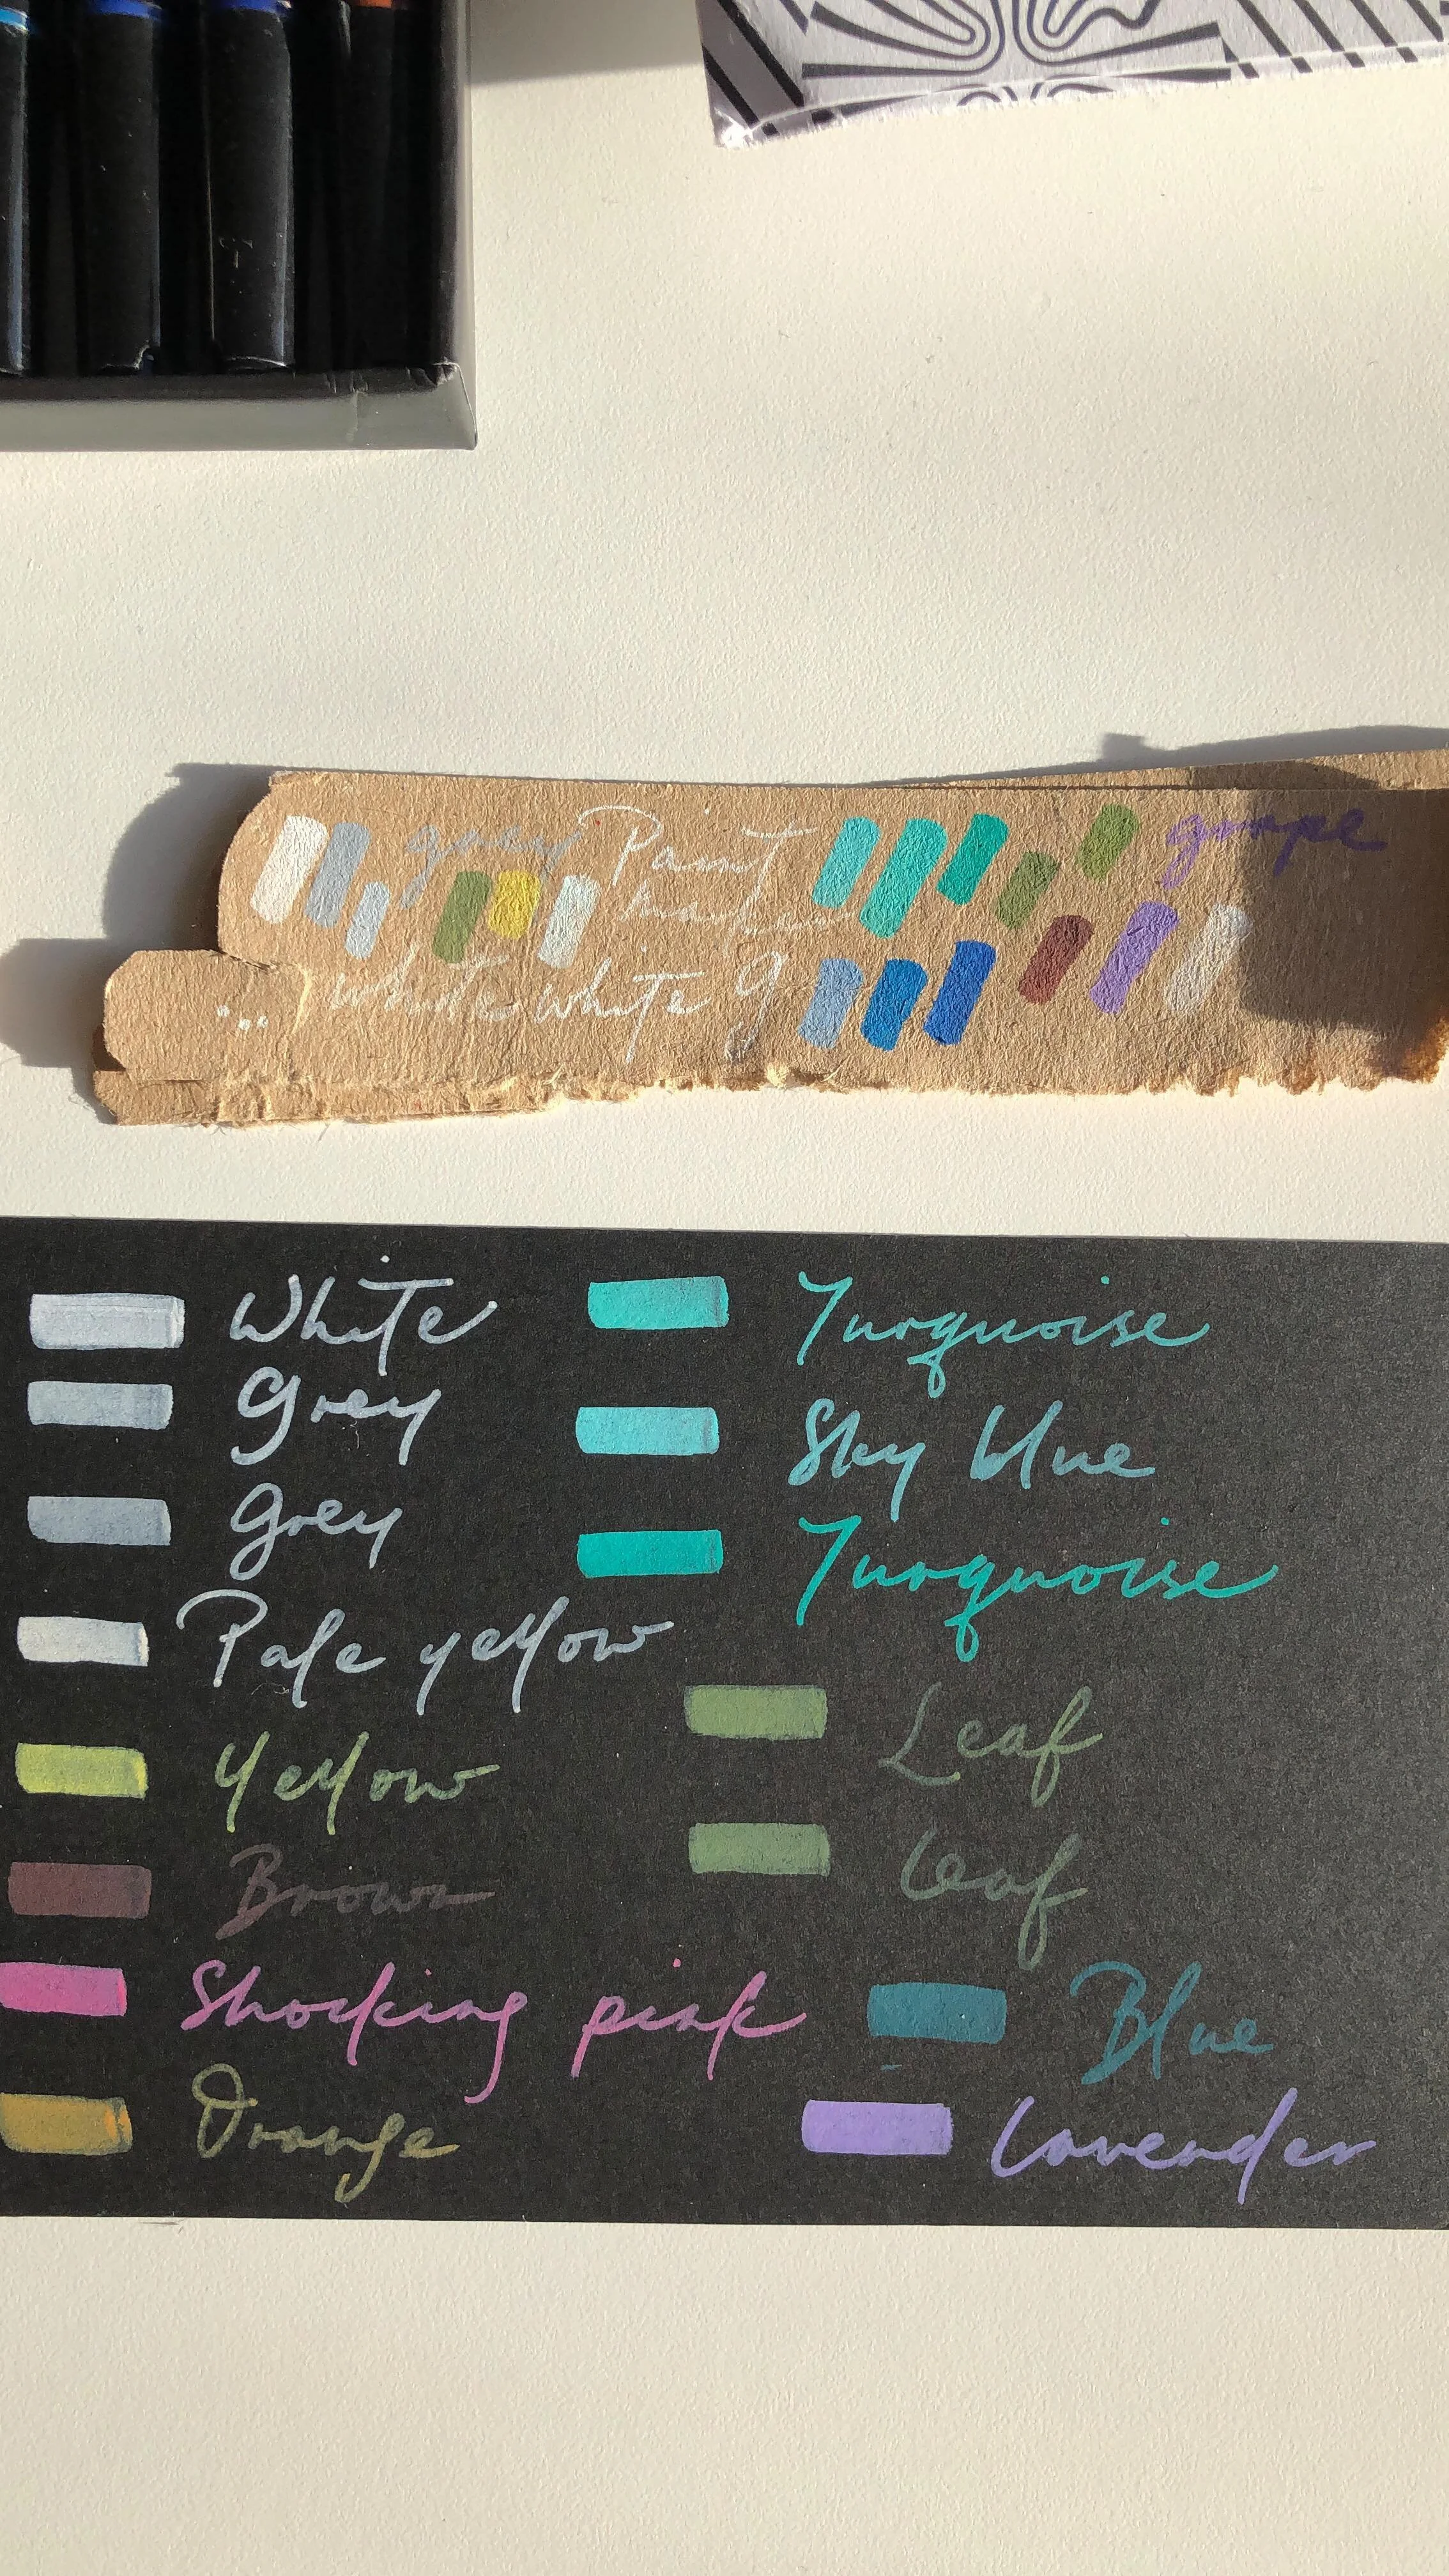 grey Paint
white white g
grape
White
Grey
Grey
Pale yellow
Yellow
Brown
Shocking pink
Orange
Turquoise
Sky blue
Turquoise
Leaf
Leaf
Blue
Lavender